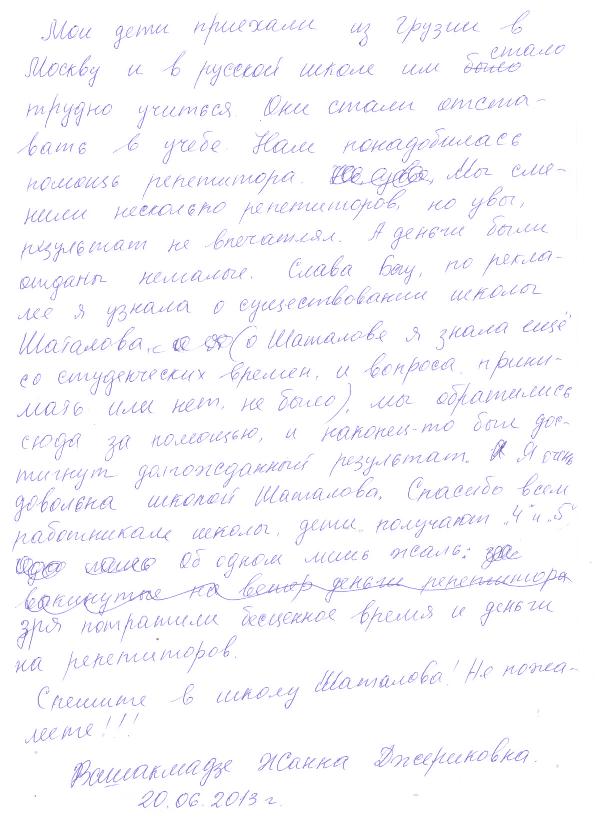 Мои дети приехали из Грузии в
Москву и в русской школе им было стало
трудно учиться. Они стали отста-
вать в учебе. Нам понадобилась
помощь репетитора. Мы сме-
нили несколько репетиторов, но увы,
результат не впечатлял. А деньги были
отданы немалые. Слава Богу, по рекла-
ме я узнала о существовании школы
Шаталова, (о Шаталове я знала ещё
со студенческих времен, и вопроса, прини-
мать или нет, не было), мы обратились
сюда за помощью, и наконец-то был дос-
тигнут долгожданный результат. Я очень
довольна школой Шаталова. Спасибо всем
работникам школы, дети получают „4" и „5"
Об одном лишь жаль: за-
вакинутые на ветер деньги репетитора
зря потратили бесценное время и деньги
на репетиторов.
Спешите в школу Шаталова! Не пожа-
леете!!!
Вашакмадзе Жанна Джериковна.
20.06.2013 г.